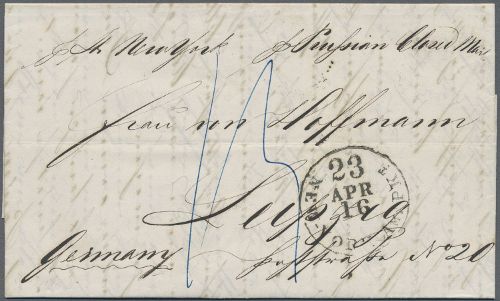 p St. New York p Prussian Closed Mail
Frau von Hoffmann
Leipzig
Germany Poststraße No 20
13
23
APR
16